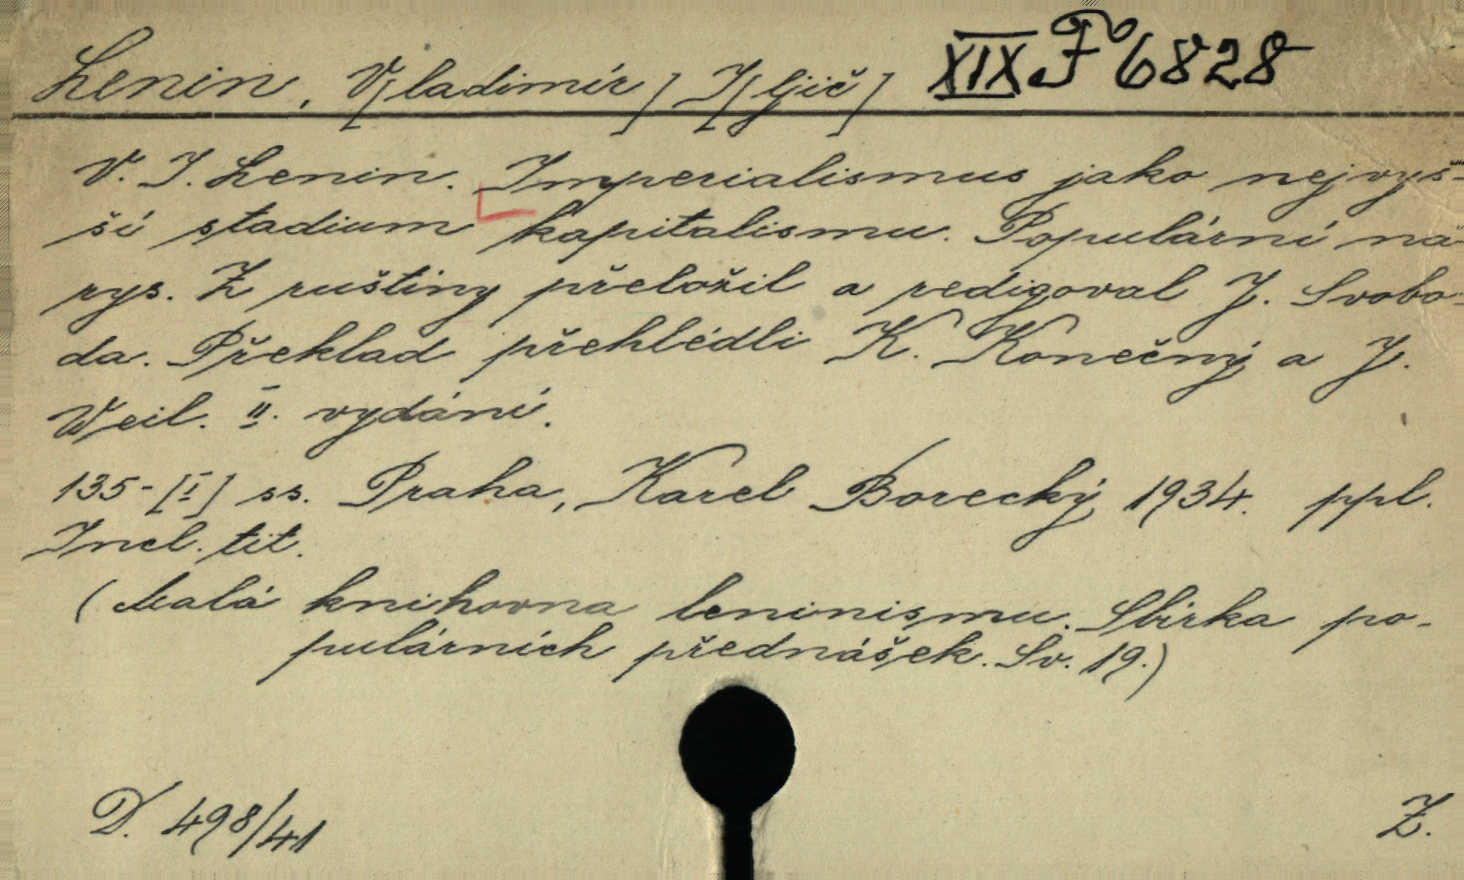 Lenin, V[ladimír] I[ljič] XIX F 6828
V. I. Lenin. Imperialismus jako nejvyš-
ší stadium kapitalismu. Populární ná-
rys. Z ruštiny přeložil a redigoval J. Svobo-
da. Překlad přehlédli K. Konečný a J.
Weil. II. vydání.
135-[I] ss. Praha, Karel Borecký 1934. ppl.
Incl. tit.
(Malá knihovna leninismu. Sbírka po-
pulárních přednášek. Sv. 19.)
D. 498/41 Z.